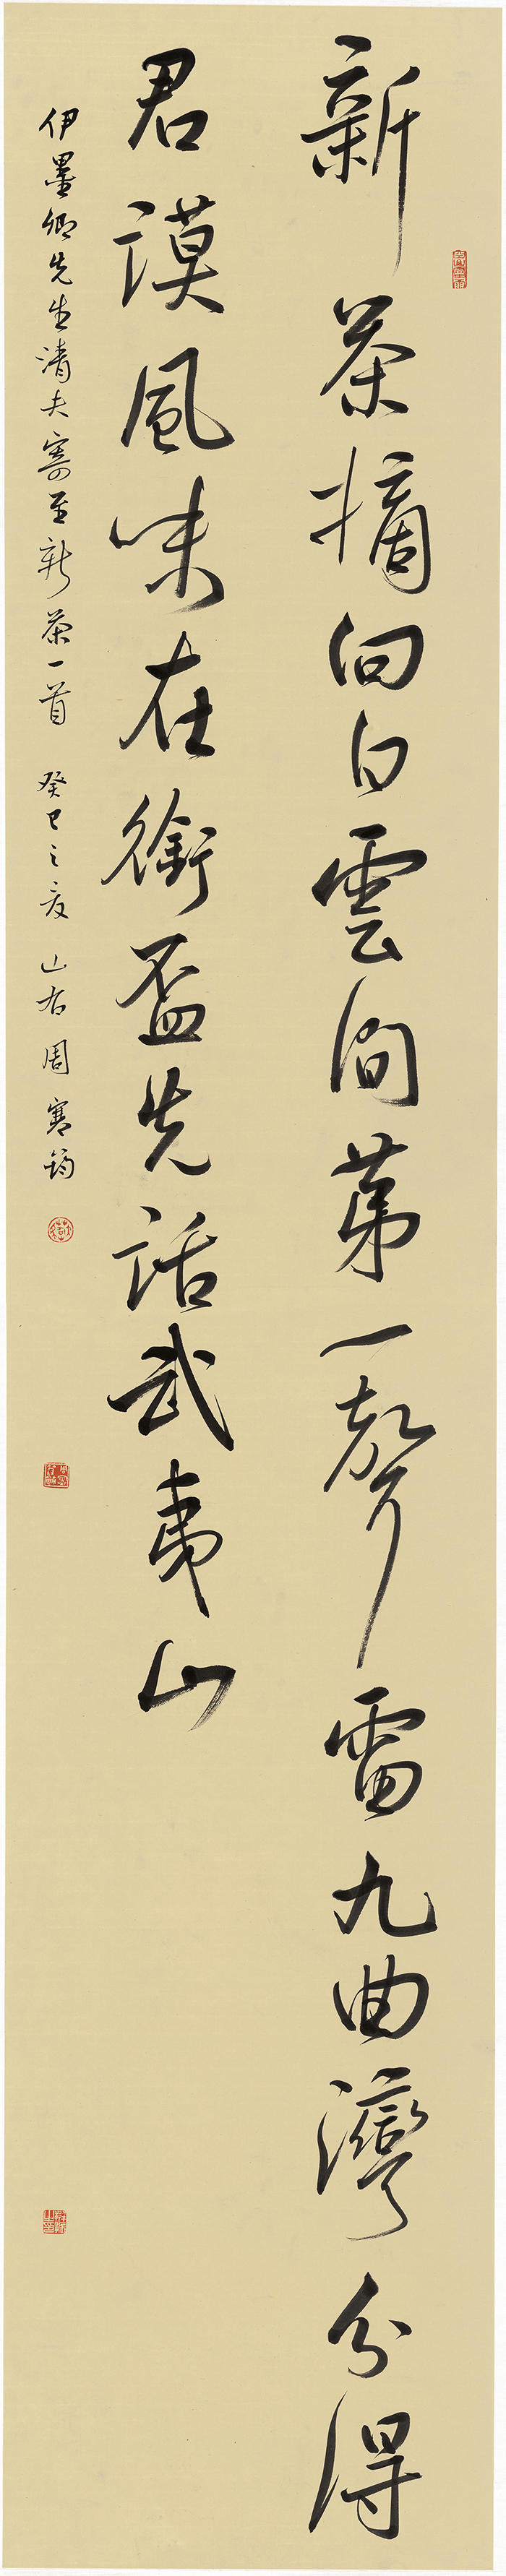 新茶摘向白雲間第一聲雷九曲灣分得
君謨風味在銜盃先話武夷山
伊墨卿先生清夫寄至新茶一首 癸巳之夏 山右周寒筠